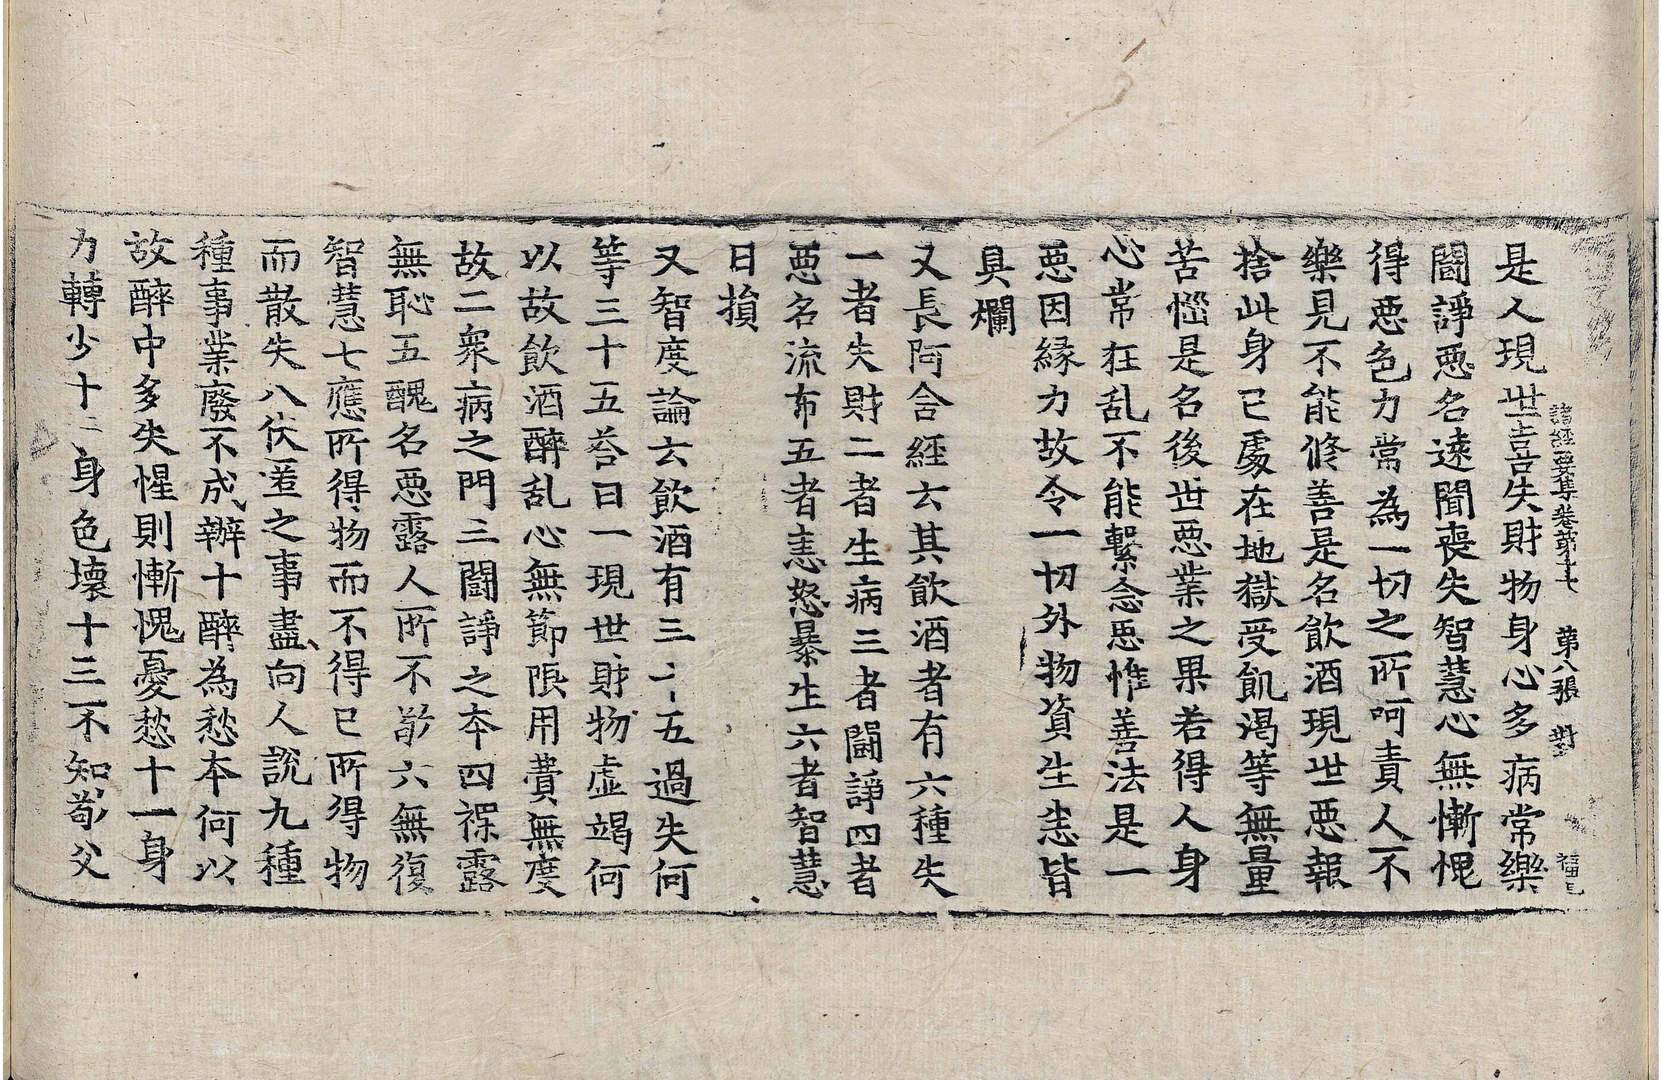 諸経要集卷第十七 第八張 對
是人現世喜失財物身心多病常樂
闘諍惡名遠聞喪失智慧心無慚愧
得惡色力常為一切之所呵責人不
樂見不能修善是名飲酒現世惡報
捨此身已處在地獄受飢渴等無量
苦惱是名後世惡業之果若得人身
心常狂乱不能繫念思惟善法是一
惡因縁力故令一切外物資生恚皆
臭爛
又長阿含經云其飲酒者有六種失
一者失財二者生病三者闘諍四者
惡名流布五者恚怒暴生六者智慧
日損
又智度論云飲酒有三十五過失何
等三十五荅曰一現世財物虛竭何
以故飲酒醉乱心無節限用費無度
故二衆病之門三闘諍之本四裸露
無恥五醜名惡露人所不敬六無復
智慧七應所得物而不得已所得物
而散失八伏匿之事盡向人說九種
種事業廢不成辦十醉為愁本何以
故醉中多失惺則慚愧憂愁十一身
力轉少十二身色壞十三不知敬父